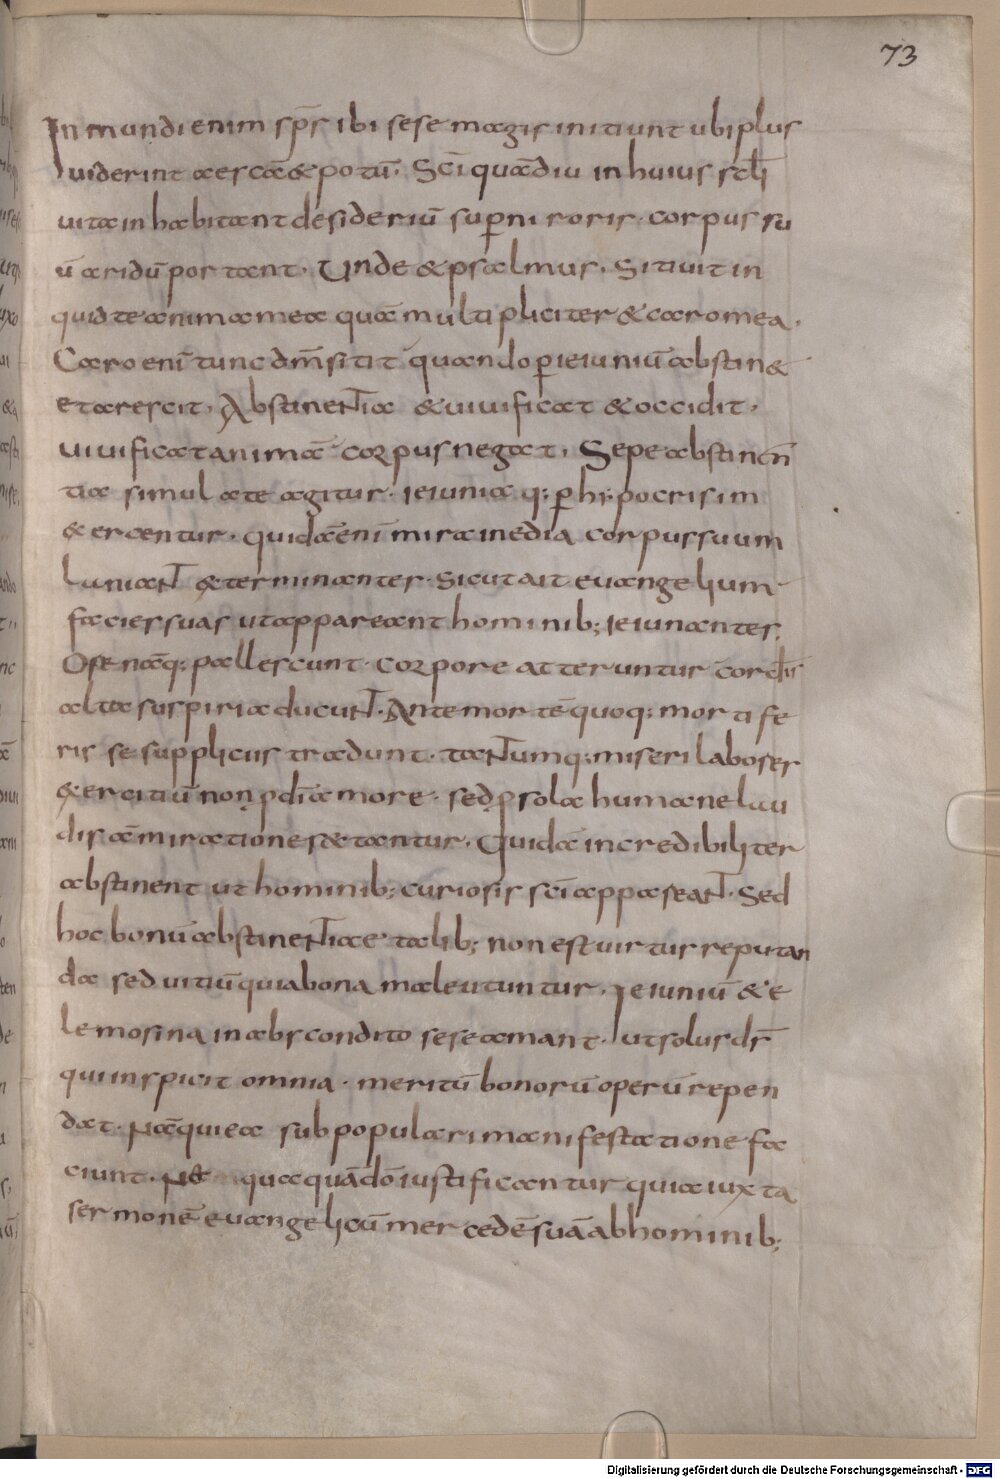 73
Inmundi enim sp̄s ibi sese magis initiunt ubi plus
uiderint aescā & potū. Sc̄i quādiu in huius scłi
uita inhabitant desideriū sup̄ni roris. corpus su
ū aridū portant. Unde & psalmus. Sitiuit in
quid te anima mea quā multipliciter & caro mea.
Caro enī tunc dm̄ sitit quando p̄ ieiuniū abstin&
et arescit. Abstinentia & uiuificat & occidit.
uiuificat animā corpus negat. Sepe abstinen̄
tia simul ate agitur. ieiunia q; p̄ hypocrisim
exercentur. quidā enī mira inedia corpus suum
luniant exterminantes. sicut ait euangelium
facies suas ut appareant hominib; ieiunantes.
Ore nāq; pallescunt. corpore atteruntur cordis
alta suspiria ducunt. Ante mortē quoq; mortife
ris se suppliciis tradunt. tantumq; miseri laboris
exercitiū non p dī amore. sed p sola humane lau
dis āmiratione sectantur. Quidā incredibiliter
abstinent ut hominib; curiosis sc̄i appareant. Sed
hoc bonū abstinentiae talib; non est uirtus reputan
da sed uitiū quia bona male utuntur. Ieiuniū & e
lemosina in abscondito sese amant. ut solus ds̄
qui inspicit omnia. meritū bonorū operū repen
dat. Nā qui ea sub populari manifestatione fa
ciunt. Ne quaquā do iustificantur quia iuxta
sermonē euangelicū mercedē suā ab hominib;
Digitalisierung gefördert durch die Deutsche Forschungsgemeinschaft - DFG